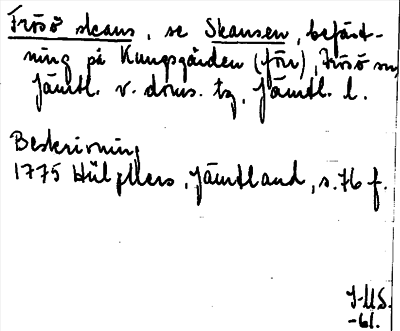 Frösö skans, se Skansen, befäst-
ning på Kungsgården (förr), Frösö sn,
Jämtl. v. doms. tg, Jämtl. l.
Beskrivning
1775 Hülphers, Jämtland, s. 76 f.
J-MS.
-61.